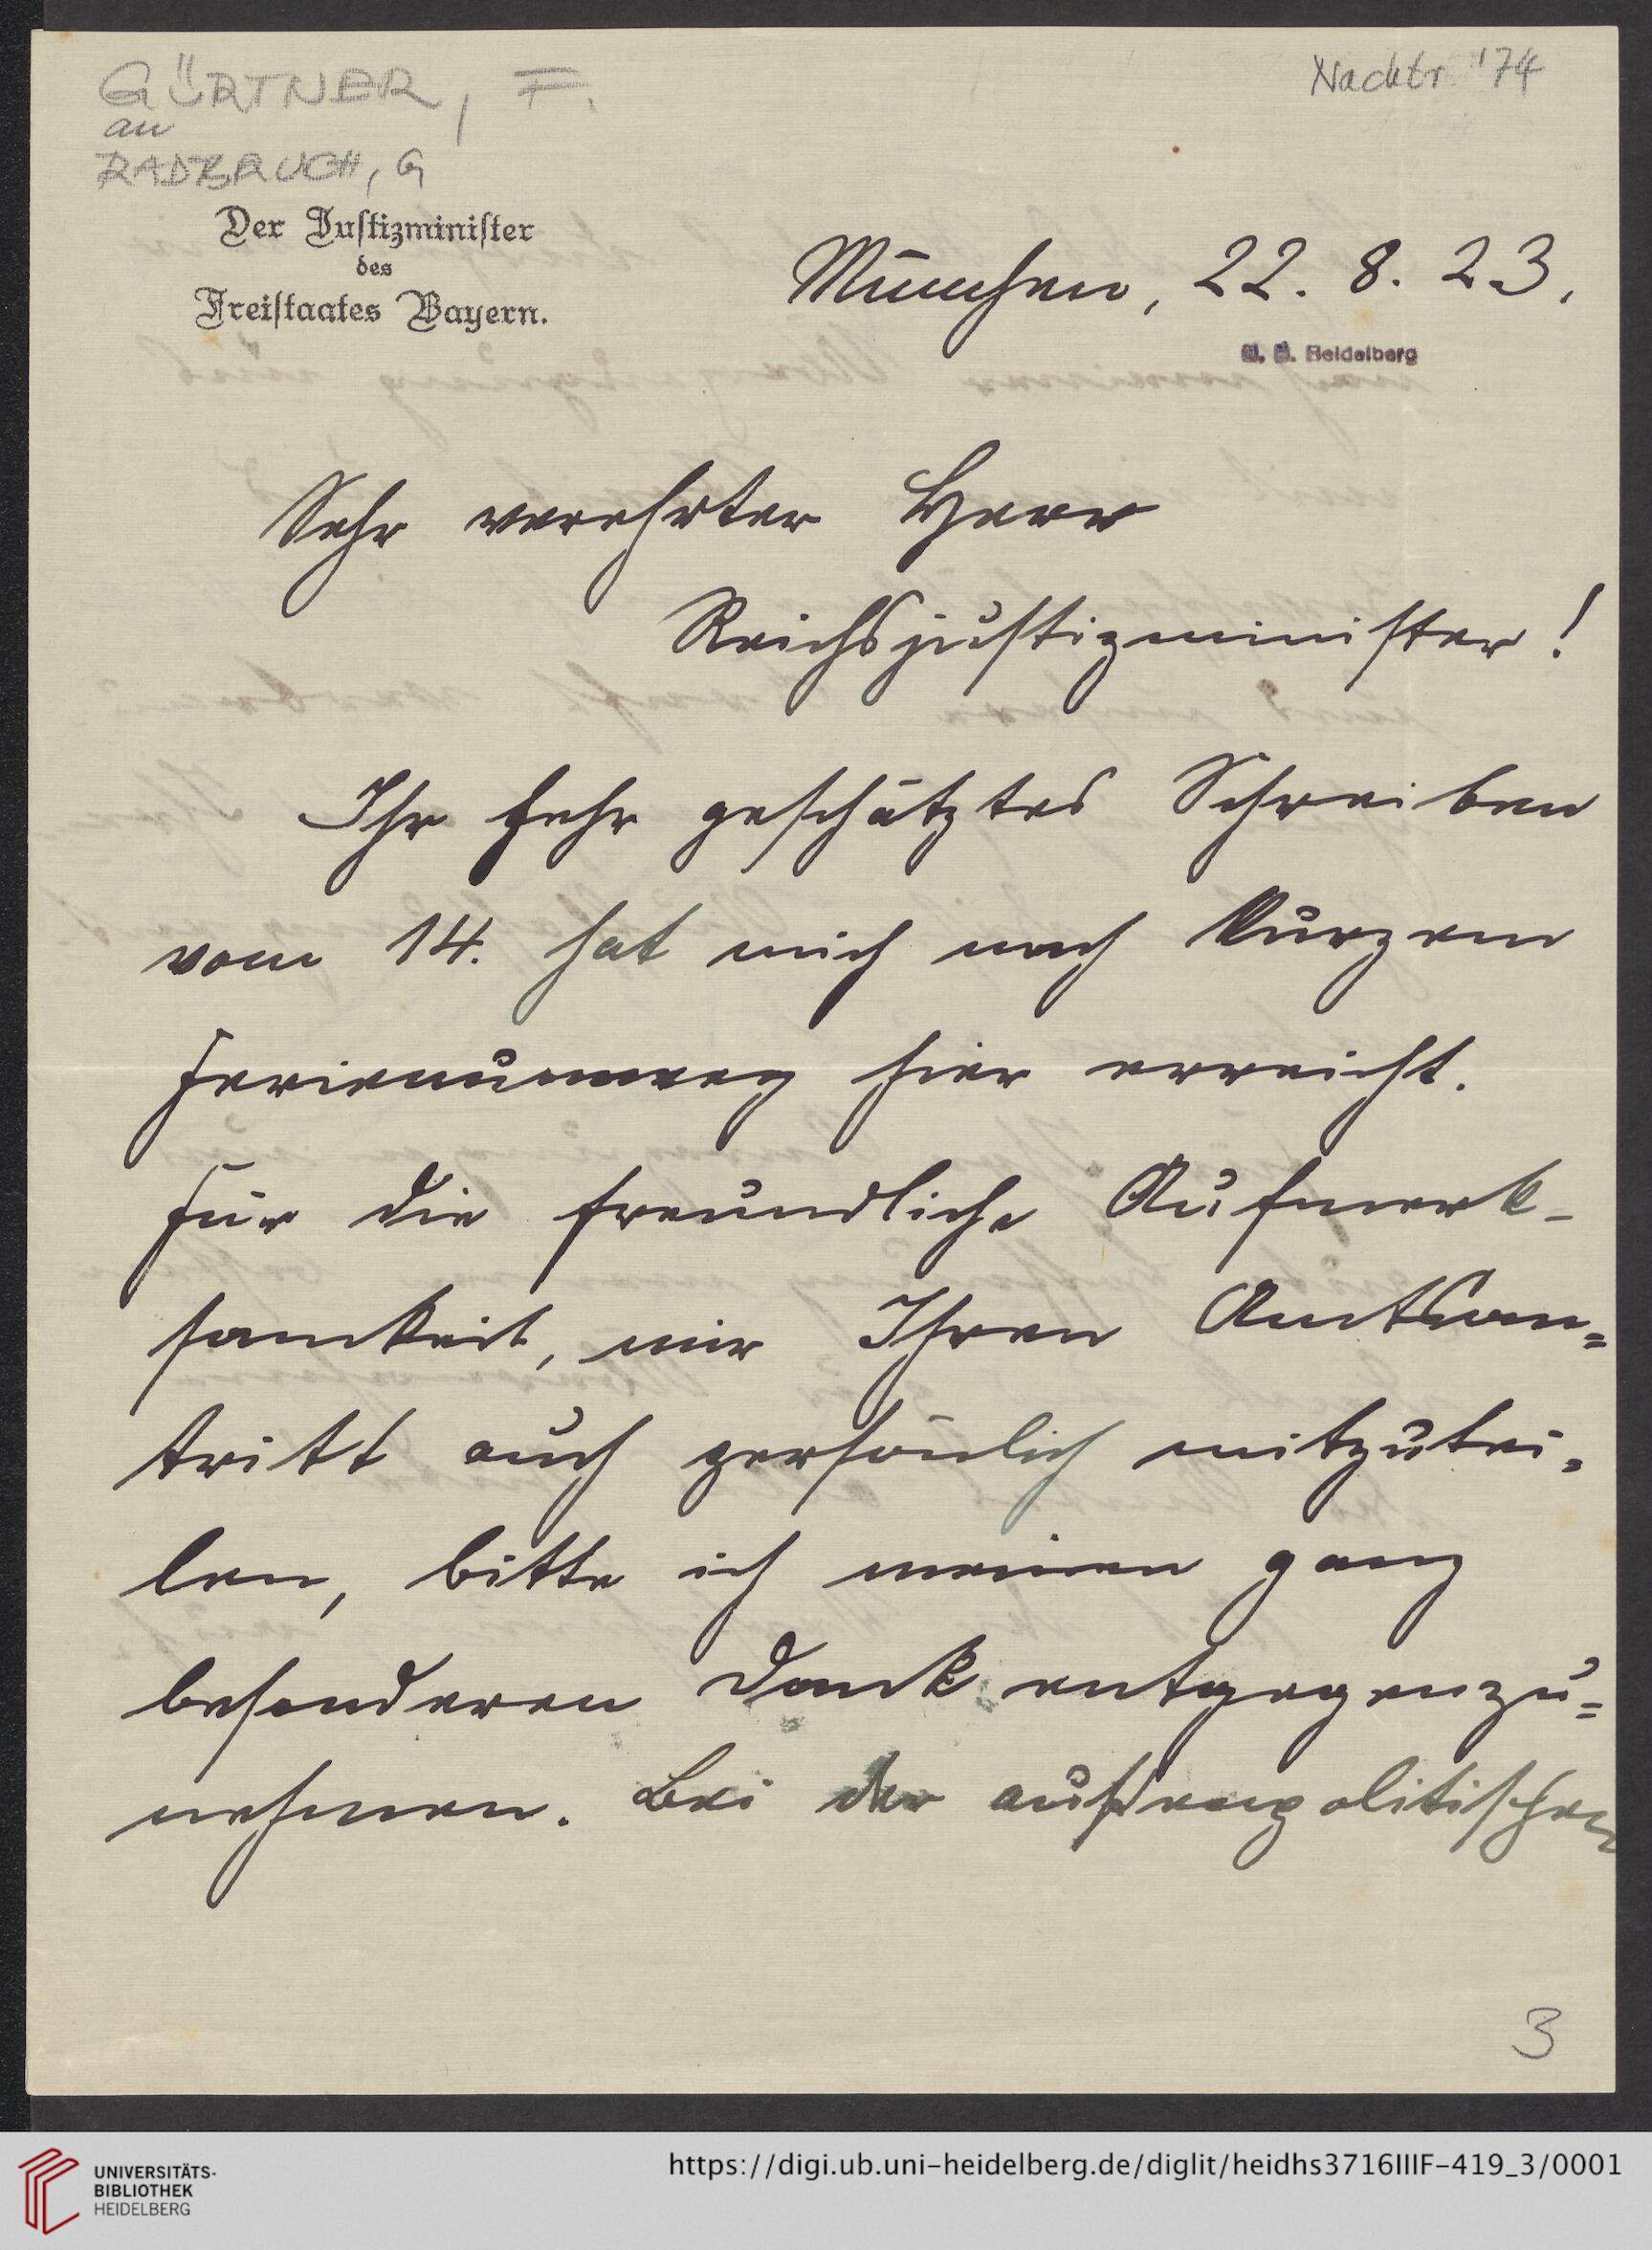 GÜRTNER, F.
an
RADBRUCH, G
Nachtr. '74
Der Justizminister
des
Freistaates Bayern.
München, 22. 8. 23.
U. B. Heidelberg
Sehr verehrter Herr
Reichsjustizminister!
Ihr sehr geschätztes Schreiben
vom 14. hat mich nach kurzem
Ferienumweg hier erreicht.
Für die freundliche Aufmerk-
samkeit, mir Ihren Amtsan-
tritt auch persönlich mitzutei-
len, bitte ich meinen ganz
besonderen Dank entgegenzu-
nehmen. Bei der außenpolitischen
3
UNIVERSITÄTS-
BIBLIOTHEK
HEIDELBERG
https://digi.ub.uni-heidelberg.de/diglit/heidhs3716IIIF-419_3/0001